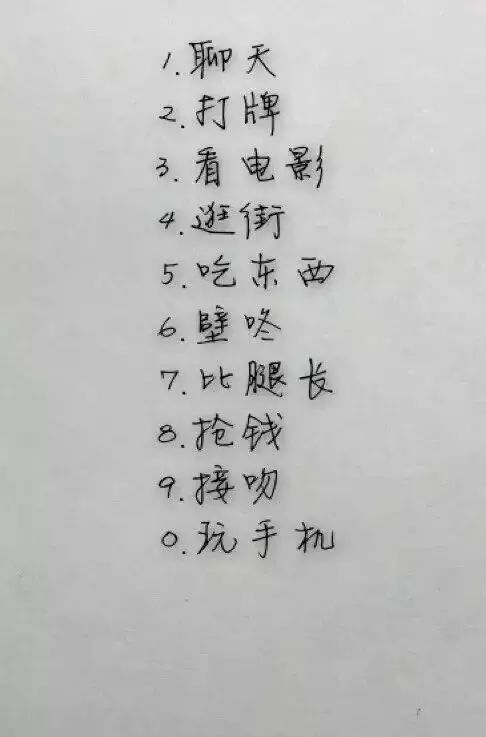 1.聊天
2.打牌
3.看电影
4.逛街
5.吃东西
6.壁咚
7.比腿长
8.抢钱
9.接吻
0.玩手机